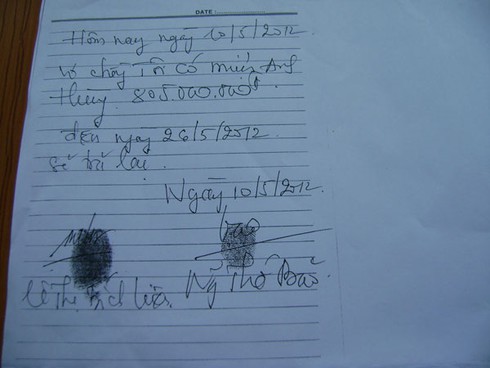 DATE:
Hôm nay ngày 10/5/2012
vợ chồng Tôi có mượn Anh
Hùng 805.000.000đ
đến ngày 26/5/2012
sẽ trả lại.
Ngày 10/5/2012
bảo
Lê Thị Bích
Ng Thế Bảo